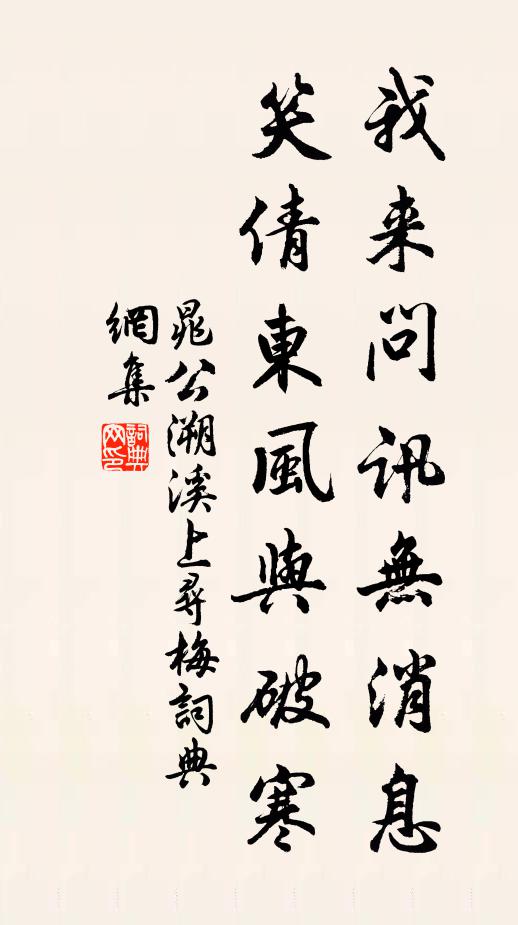 我来問訊無消息
笑倩東風與破寒
晁公溯溪上尋梅詞典
網集
詞典
网印